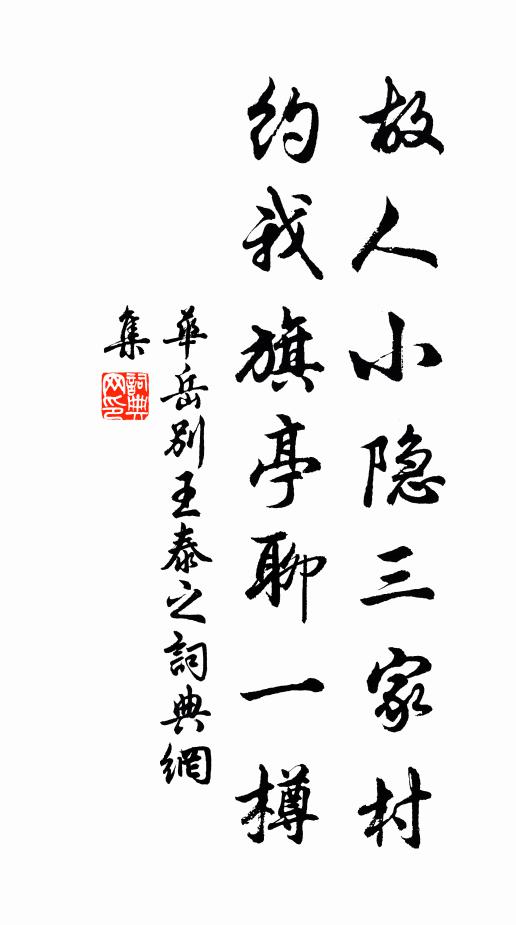 故人小隐三家村
約我旗亭聊一樽
華岳別王泰之詞典網
集
詞典
网印